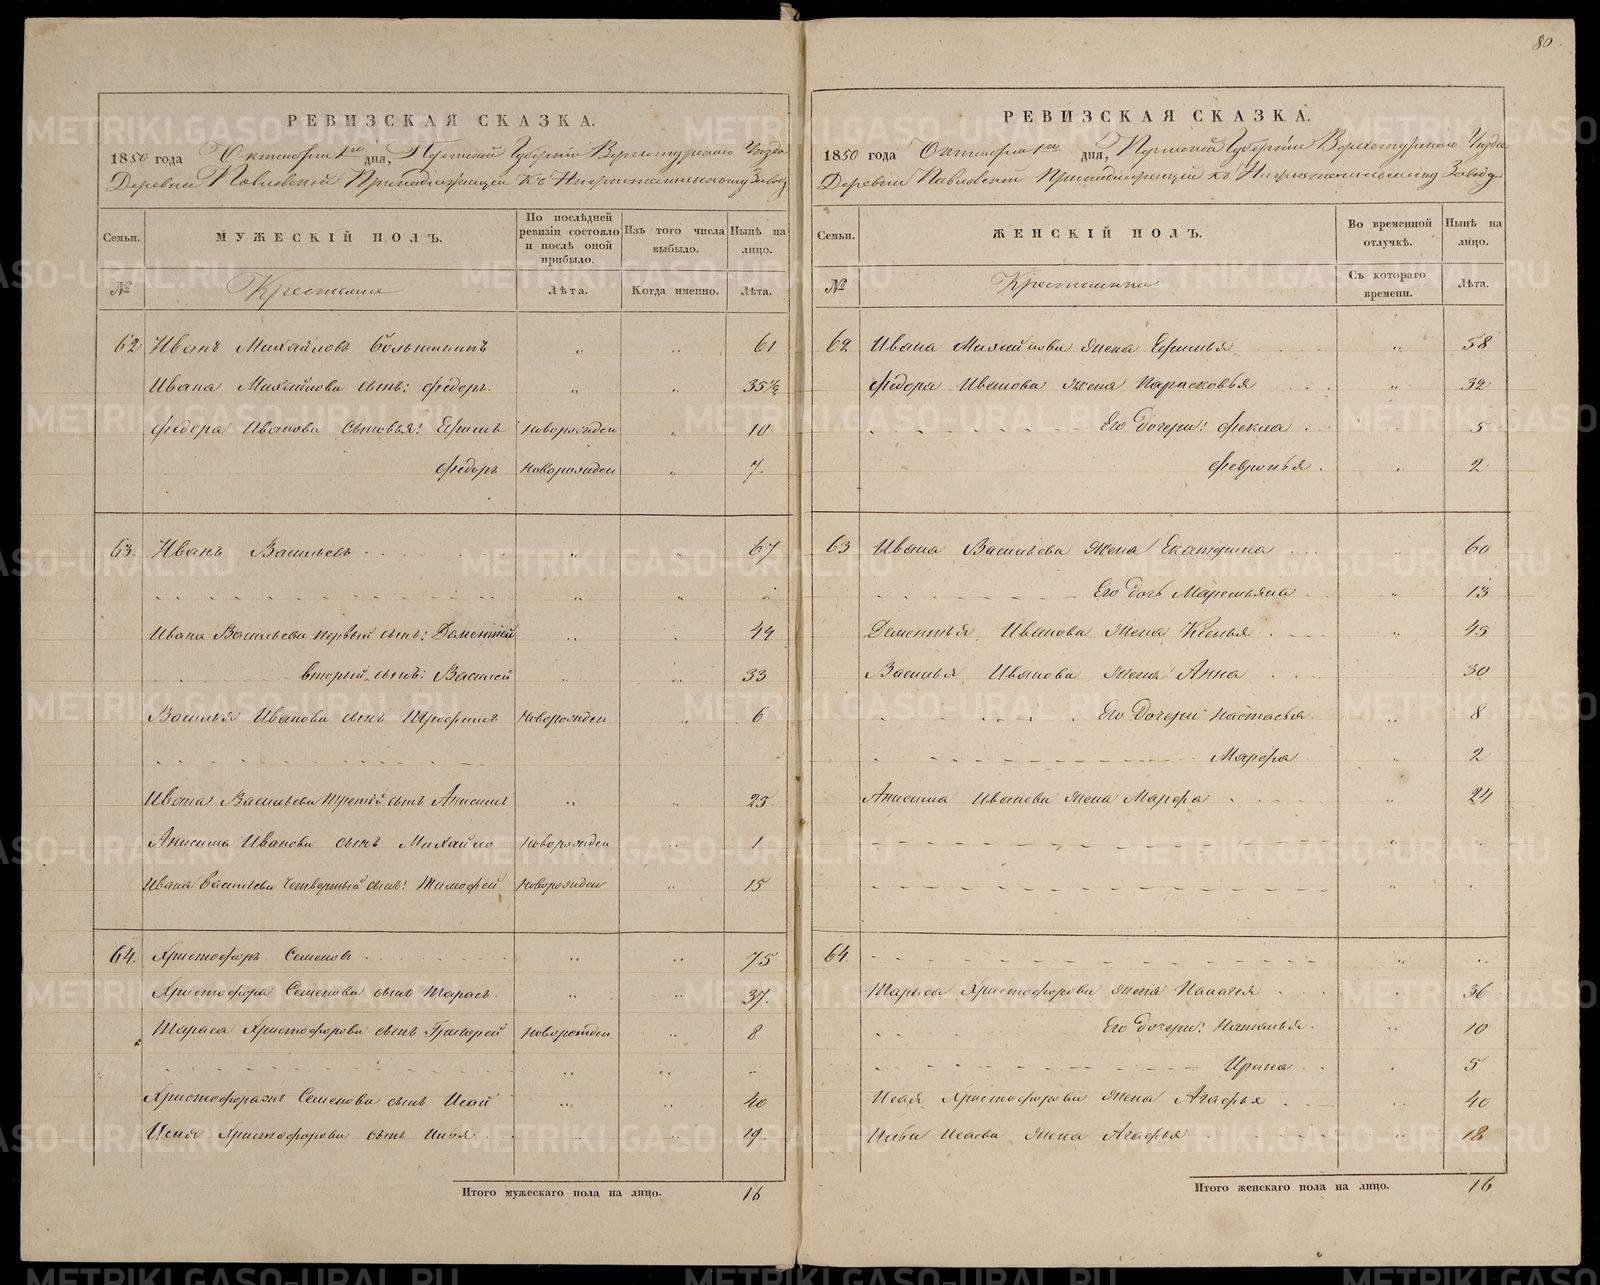 80
РЕВИЗСКАЯ СКАЗКА.
1850 года Октября 1го дня, Пермской Губернiи Верхотурскаго Уѣзда
Деревни Павловской Принадлежащей Къ Заводу
Семьи.
МУЖЕСКІЙ ПОЛЪ.
По послѣдней ревизіи состояло и послѣ оной прибыло.
Изъ того числа выбыло.
Нынѣ на лицо.
№
Крестьяне
Лѣта.
Когда именно.
Лѣта.
62 Иванъ Михайловъ " " 61
Ивана Михайлова сынъ: Федоръ " " 35 1/2
Федора Иванова сыновья: Ефимъ новорожден " 10
Федоръ новорожден " 7
63. Иванъ Васильевъ " " 67
Ивана Васильева первый сынъ: Дементей " " 44
второй сынъ: Василей " " 33
Василья Иванова сынъ Трофимъ новорожден " 6
Ивана Васильева третий сынъ Анисимъ " " 25
Анисима Иванова сынъ Михайло новорожден " 1
Ивана Васильева четвертый сынъ: Тимофей новорожден " 15
64. Христофоръ Семеновъ " " 75
Христофора Семенова сынъ Тарасъ " " 37
Тараса Христофорова сынъ Григорей новорожден " 8
Семенова сынъ Исай " " 40
Исая Христофорова сынъ " " 19
Итого мужескаго пола на лицо. 16
РЕВИЗСКАЯ СКАЗКА.
1850 года Октября 1го дня, Пермской Губернiи Верхотурскаго Уѣзда
Деревни Павловской Принадлежащей къ Заводу
Семьи.
ЖЕНСКІЙ ПОЛЪ.
Во временной отлучкѣ.
Нынѣ на лицо.
№
Крестьянки
Съ котораго времени.
Лѣта.
62 Ивана Михайлова жена Ефимья " 58
Федора Иванова жена Парасковья " 32
Его дочери: Фекла " 5
Февронья " 2
63 Ивана Васильева жена Екатерина " 60
Его дочь " 13
Дементья Иванова жена Ксенья " 45
Василья Иванова жена Анна " 30
Его дочери Настасья " 8
Марфа " 2
Анисима Иванова жена Марфа " 24
64
Тараса Христофорова жена Палагея " 36
Его дочери: Наталья " 10
Ирина " 5
Исая Христофорова жена Агафья " 40
Исаева жена Агафья " 18
Итого женскаго пола на лицо. 16
METRIKI.GASO-URAL.RU